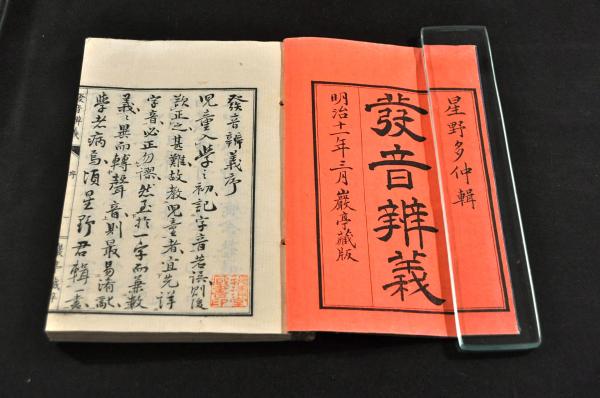 星野多仲輯
發音辨義
明治十一年三月巖亭藏版
發音辨義序
兒童入學之初記字音若誤則後
欲正之甚難故教兒童者宜先詳
字音必正勿謬然至於一字而兼數
義〻異而轉聲音則最易淆
學者病焉頃星野君輯書
發音辨義
序